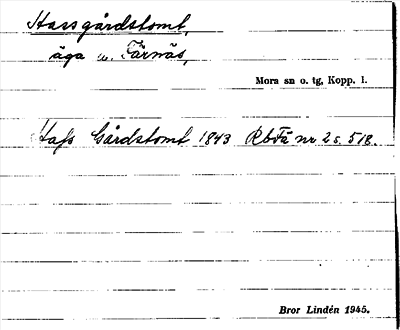 Hassgårdstomt,
äga i Färnäs,
Mora sn o. tg, Kopp. l.
Hafs Gårdstomt 1843 RbFä nr 2 s. 518.
Bror Lindén 1945.